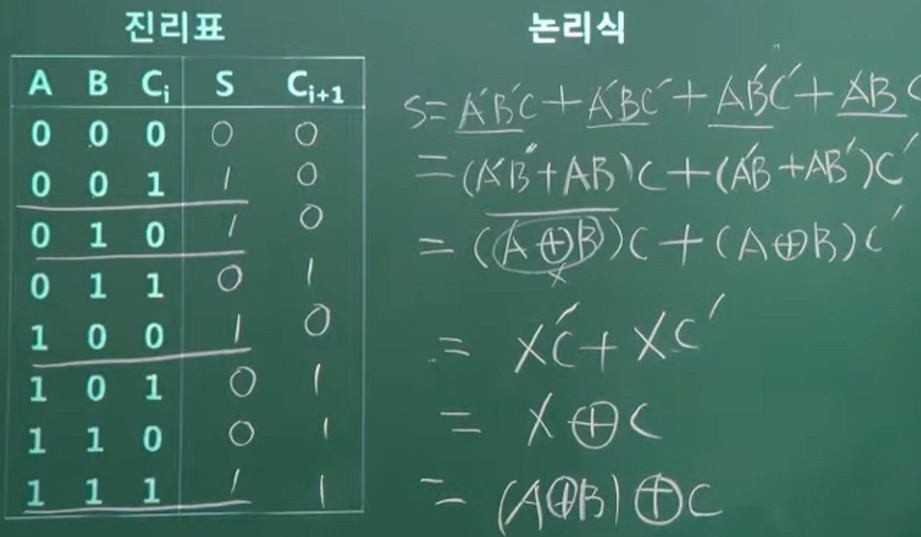 진리표
논리식
A B Ci S Ci+1
0 0 0 0 0
0 0 1 1 0
0 1 0 1 0
0 1 1 0 1
1 0 0 1 0
1 0 1 0 1
1 1 0 0 1
1 1 1 1 1
S = A'B'C + A'BC' + AB'C' + ABC
= (A'B' + AB)C + (A'B + AB')C'
= (A⊕B)C + (A⊕B)C'
X
= X'C + XC'
= X⊕C
= (A⊕B)⊕C